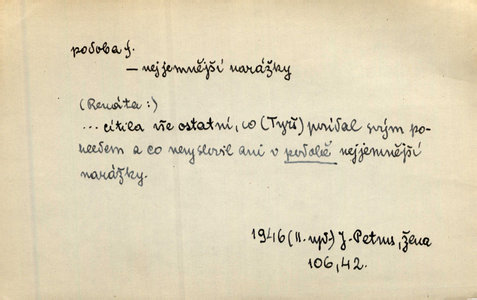 podoba f.
— nejjemnější narážky
(Renáta:)
... cítila vše ostatní, co (Tyrš) přidal svým po-
hledem a co nevyslovil ani v podobě nejjemnější
narážky.
1946 (II. vyd.) J. Petrus, Žena
106, 42.